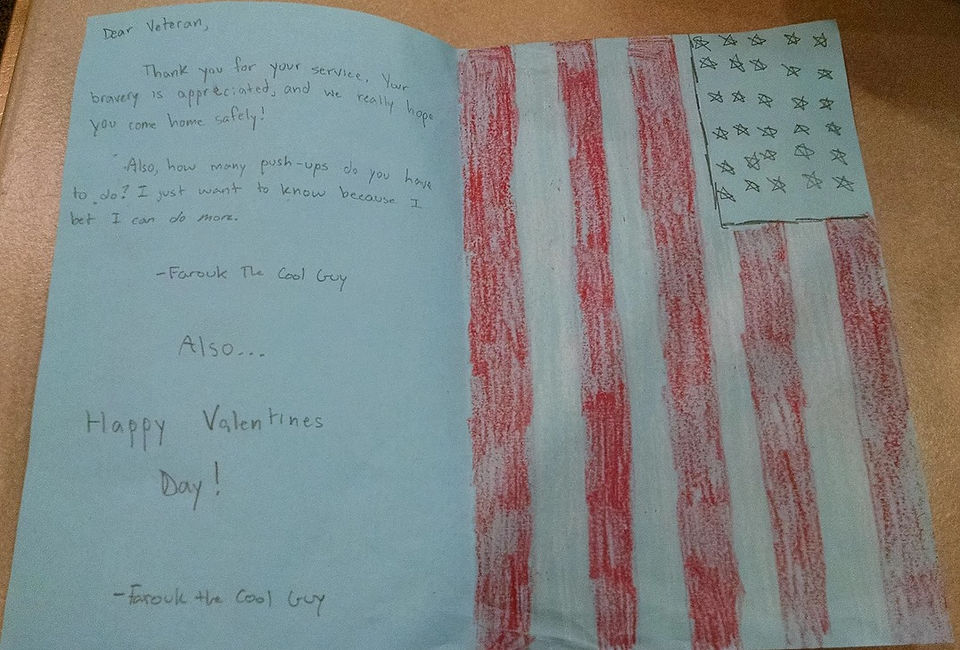 Dear Veteran,
Thank you for your service. Your
bravery is appreciated, and we really hope
you come home safely!
Also, how many push-ups do you have
to do? I just want to know because I
bet I can do more.
-Farouk The Cool Guy
Also...
Happy Valentines
Day!
-Farouk the Cool Guy